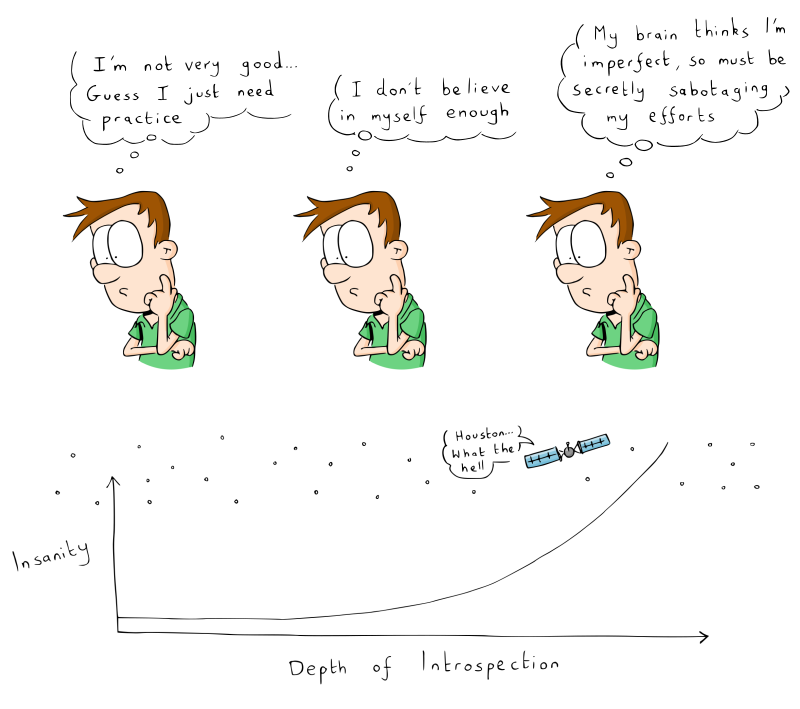 I'm not very good...
Guess I just need
practice
I don't believe
in myself enough
My brain thinks I'm
imperfect, so must be
secretly sabotaging
my efforts
Houston...
What the
hell
Insanity
Depth of Introspection